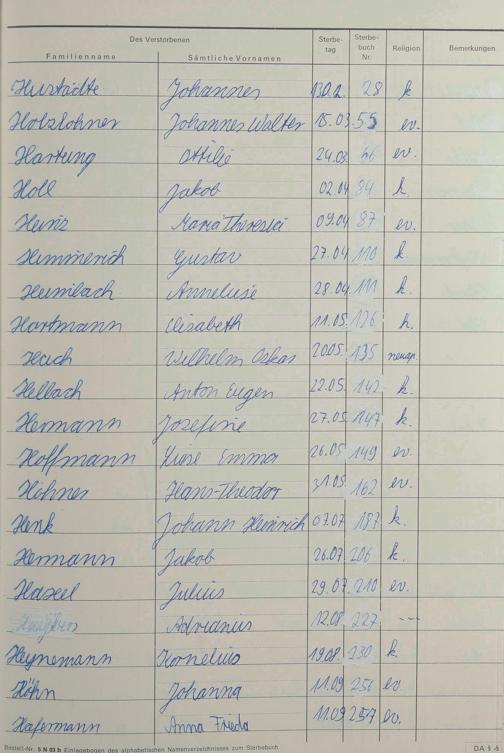 Des Verstorbenen
Familienname Sämtliche Vornamen Sterbe-tag Sterbe-buch Nr. Religion Bemerkungen
Hustädte Johannes 28 k
Holzlohner Johannes Walter 15.03 55 ev.
Hartung Ottilie 24.03 ev.
Holl Jakob 02.04 84 k.
Heinz Maria Theresia 09.04 87 ev.
Himmerich Gustav 27.04 110 k.
Heimbach Anneliese 28.04 111 k.
Hartmann Elisabeth 11.05. 126 k.
Hach Wilhelm Oskar 20.05 135 neuap.
Helbach Anton Eugen 22.05. 142 k.
Hermann Josefine 27.05 147 k.
Hoffmann Luise Emma 26.05 149 ev.
Höhner Hans-Theodor 31.05 162 ev.
Henk Johann Heinrich 07.07 187 k.
Hermann Jakob 26.07 206 k
Hassel Julius 29.07 210 ev.
Adrianus 12.08. 227 ---
Heynemann Kornelius 19.08. 230 k.
Höhn Johanna 11.09 256 ev
Hafermann Anna Frieda 11.09 257 ev.
Bestell-Nr. 5 N 03 b Einlagebogen des alphabetischen Namenverzeichnisses zum Sterbebuch